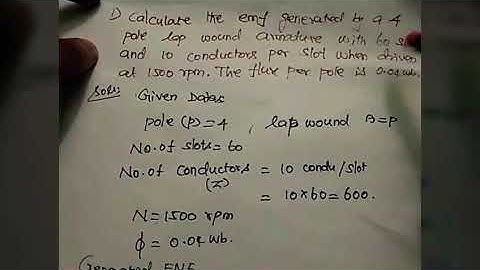 1) Calculate the emf generated by a 4
pole lap wound armature with 60
and 10 conductors per slot when driven
at 1500 rpm. The flux per pole is 0.04 wb.
Soln: Given Data:
pole (P) = 4 , lap wound A = P
No. of slots = 60
No. of conductors = 10 condu/slot
(Z) = 10 × 60 = 600.
N = 1500 rpm
ϕ = 0.04 wb.
Generated EMF